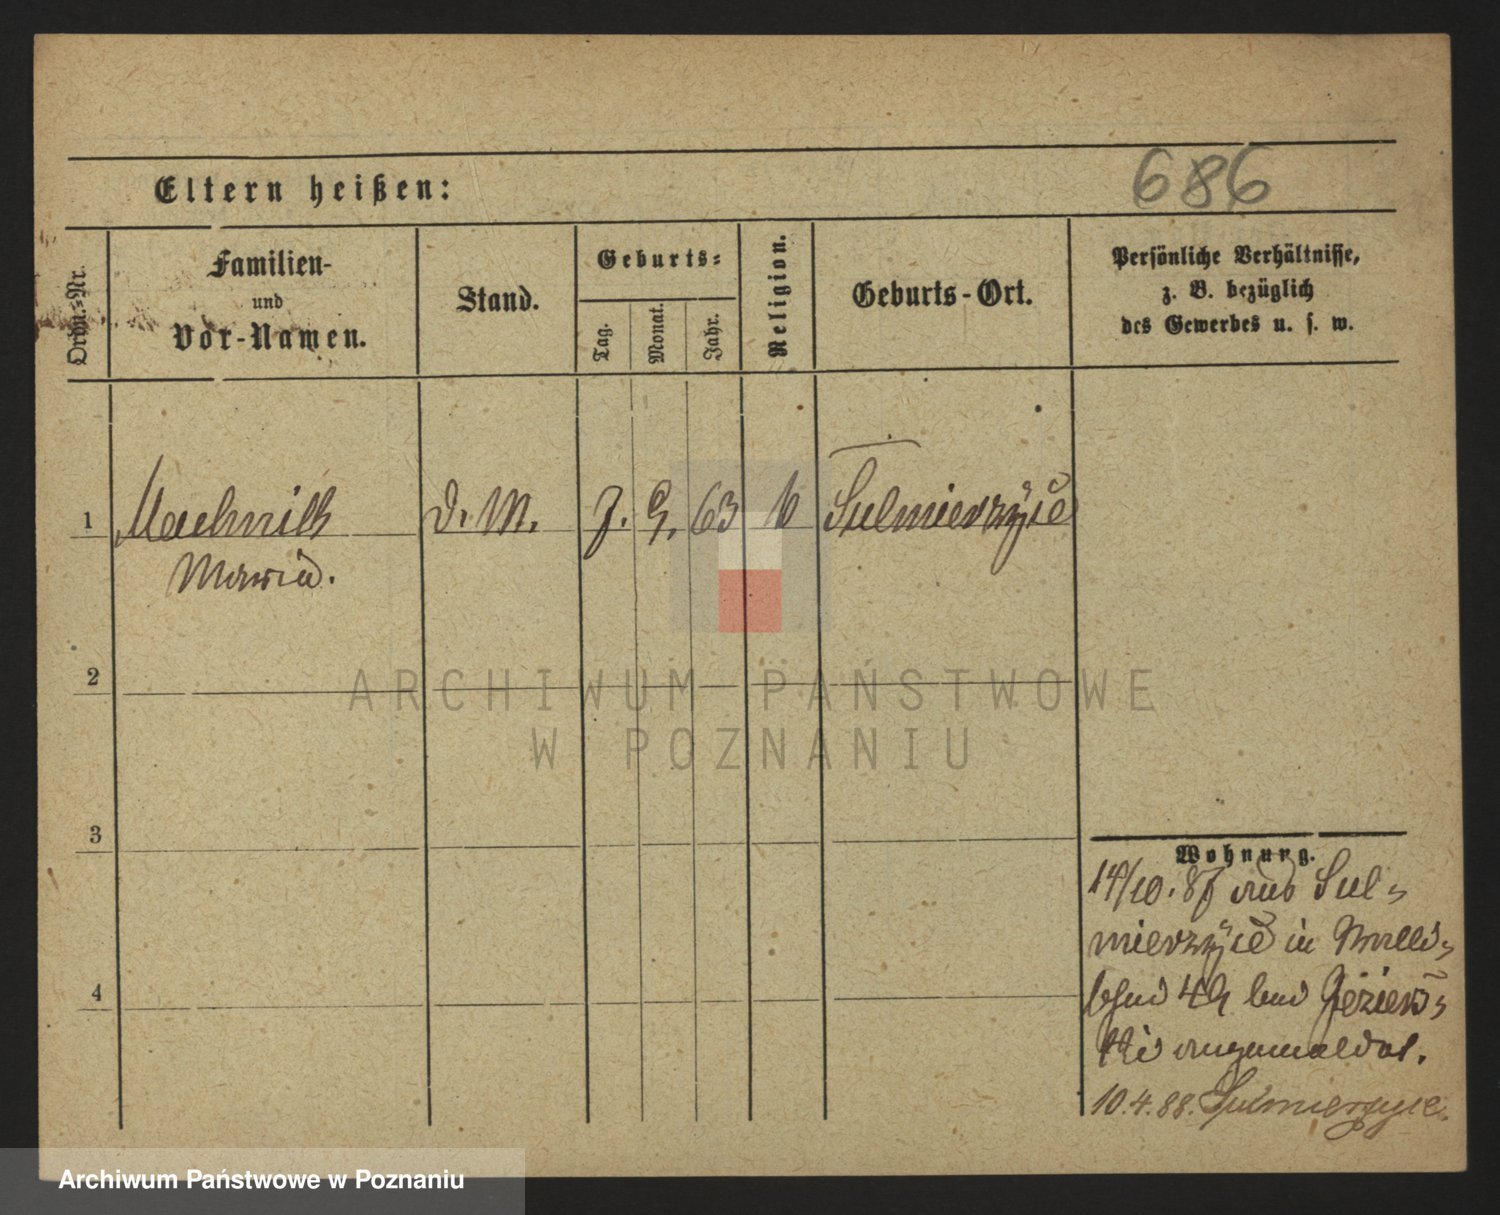 Eltern heißen:
686
Ordn.-Nr.
Familien-
und
Vor-Namen.
Stand.
Geburts-
Tag.
Monat.
Jahr.
Religion.
Geburts-Ort.
Persönliche Verhältnisse,
z. B. bezüglich
des Gewerbes u. s. w.
1 Machnik D. M. 7. 9. 63 k Sulmierzyce
Maria.
2
ARCHIWUM PAŃSTWOWE
W POZNANIU
3
Wohnung.
14/10. 87 aus Sul-
mierzyce in
4
49 bei Jeziers-
ki angemeldet.
10.4.88. Sulmierzyce.
Archiwum Państwowe w Poznaniu